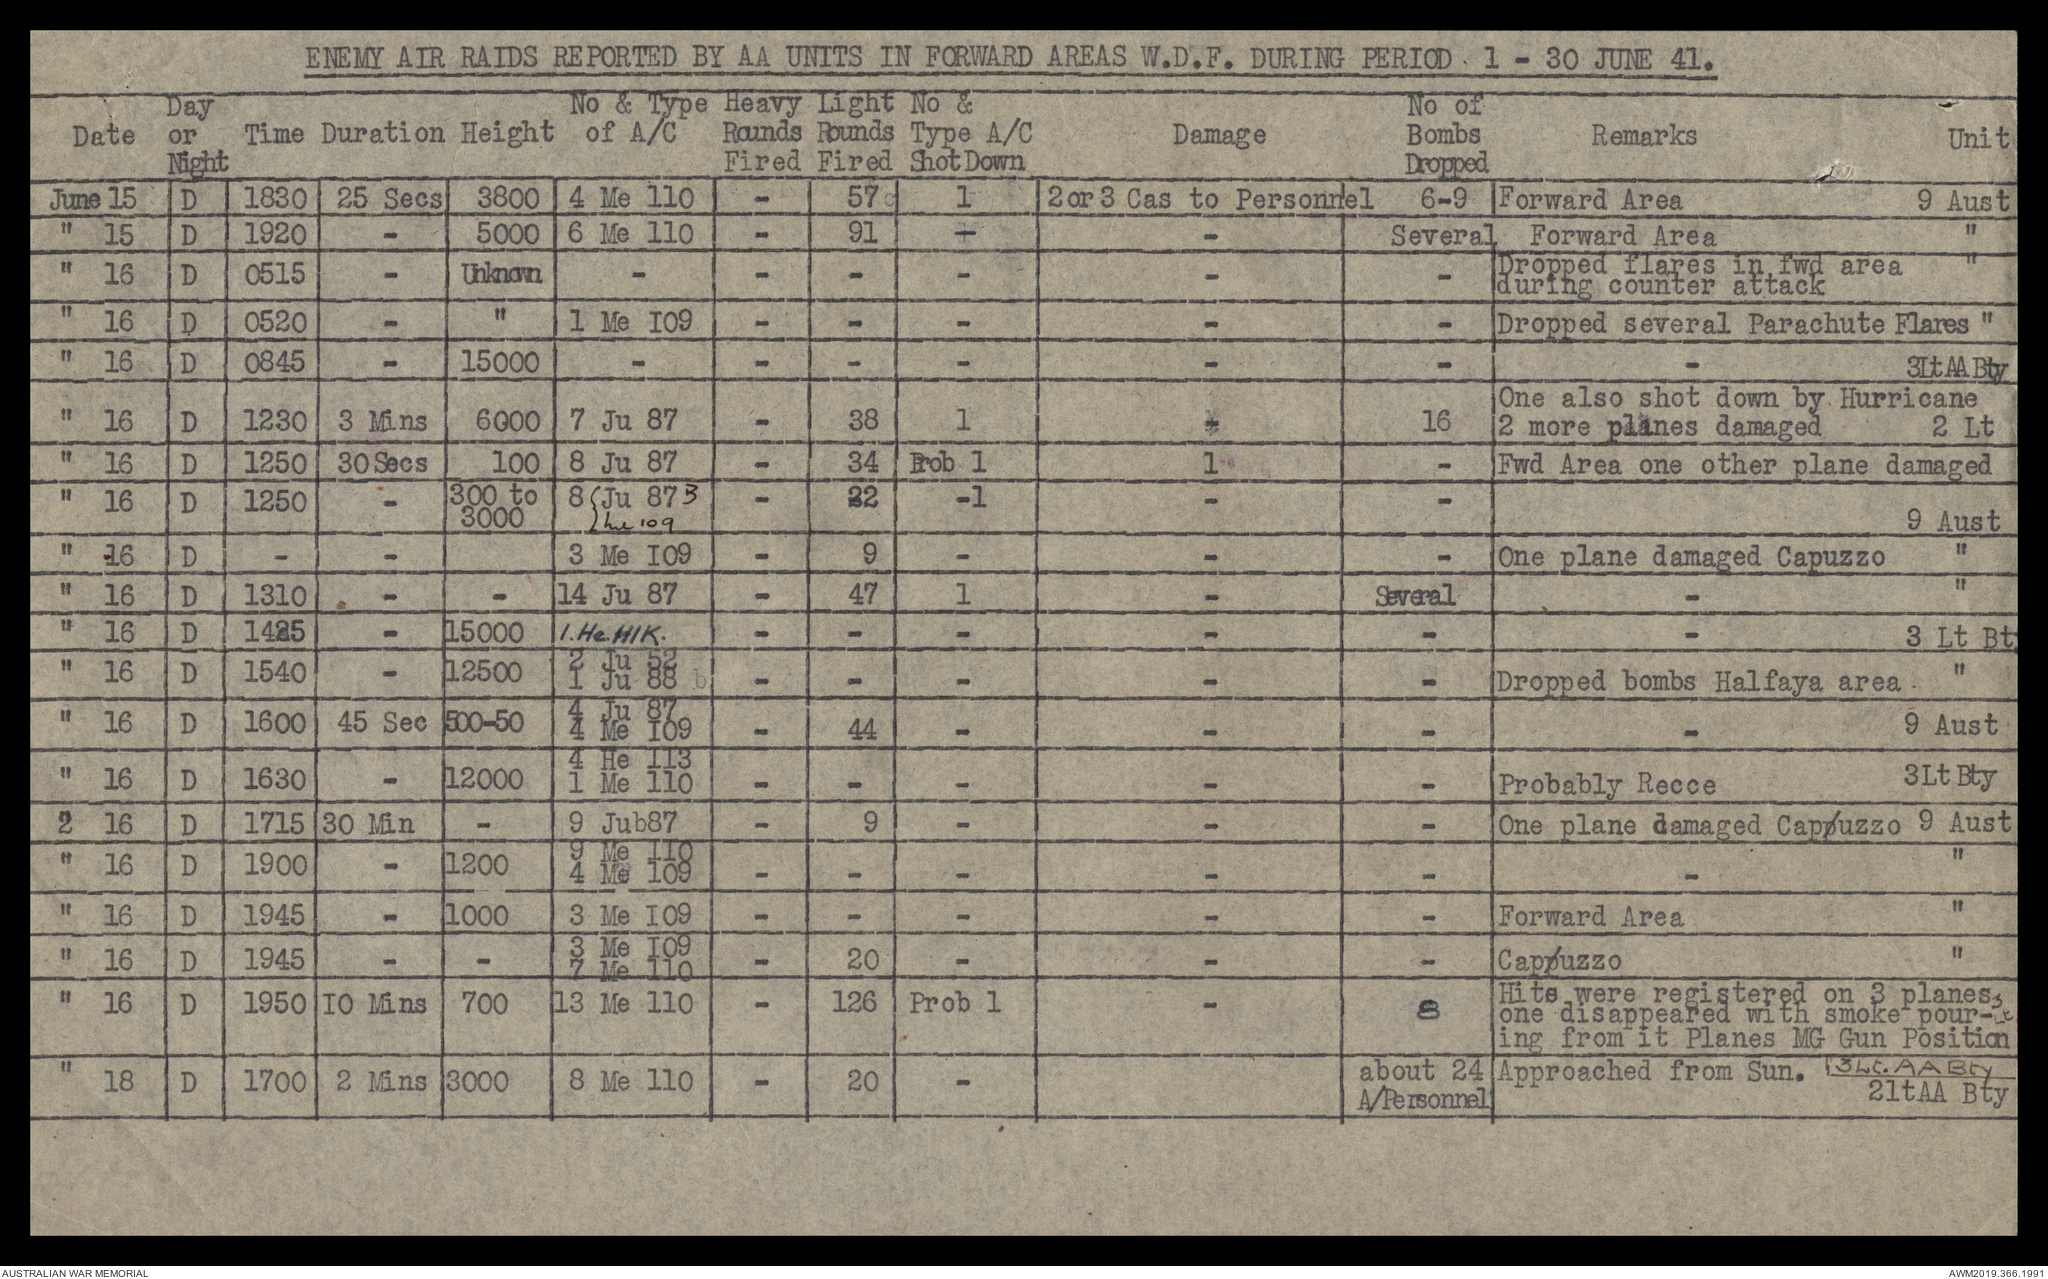 ENEMY AIR RAIDS REPORTED BY AA UNITS IN FORWARD AREAS W.D.F. DURING PERIOD 1 - 30 JUNE 41.
Date Day or Night Time Duration Height No & Type of A/C Heavy Rounds Fired Light Rounds Fired No & Type A/C Shot Down Damage No of Bombs Dropped Remarks Unit
June 15 D 1830 25 Secs 3800 4 Me 110 - 57 1 2 or 3 Cas to Personnel 6-9 Forward Area 9 Aust
" 15 D 1920 - 5000 6 Me 110 - 91 - - Several Forward Area "
" 16 D 0515 - Unknown - - - - - - Dropped flares in fwd area "
during counter attack
" 16 D 0520 - " 1 Me I09 - - - - - Dropped several Parachute Flares "
" 16 D 0845 - 15000 - - - - - - - 3Lt AA Bty
One also shot down by Hurricane
" 16 D 1230 3 Mins 6000 7 Ju 87 - 38 1 - 16 2 more planes damaged 2 Lt
" 16 D 1250 30 Secs 100 8 Ju 87 - 34 Prob 1 1 - Fwd Area one other plane damaged
" 16 D 1250 - 300 to 3000 8 Ju 87 B - 22 -1 - -
109 9 Aust
" 16 D - - 3 Me I09 - 9 - - - One plane damaged Capuzzo "
" 16 D 1310 - - 14 Ju 87 - 47 1 - Several - "
" 16 D 1425 - 15000 1. He. H1K. - - - - - - 3 Lt Bt
" 16 D 1540 - 12500 2 Ju 52
1 Ju 88 b - - - - - Dropped bombs Halfaya area "
" 16 D 1600 45 Sec 500-50 4 Ju 87
4 Me I09 - 44 - - - - 9 Aust
" 16 D 1630 - 12000 4 He 113
1 Me 110 - - - - - Probably Recce 3Lt Bty
2 16 D 1715 30 Min - 9 Jub87 - 9 - - - One plane damaged Capuzzo 9 Aust
" 16 D 1900 - 1200 9 Me 110
4 Me 109 - - - - - - "
" 16 D 1945 - 1000 3 Me I09 - - - - - Forward Area "
" 16 D 1945 - - 3 Me I09
7 Me 110 - 20 - - - Capuzzo "
" 16 D 1950 I0 Mins 700 13 Me 110 - 126 Prob 1 - 8 Hits were registered on 3 planes
one disappeared with smoke pour-
ing from it Planes MG Gun Position
" 18 D 1700 2 Mins 3000 8 Me 110 - 20 - about 24 A/Personnel Approached from Sun. 3 Lt. AA Bty
2ltAA Bty
AUSTRALIAN WAR MEMORIAL
AWM2019.366.1991